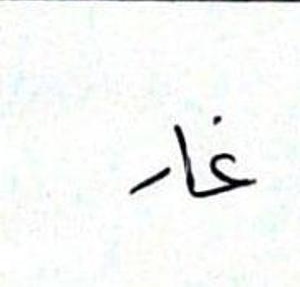 غار